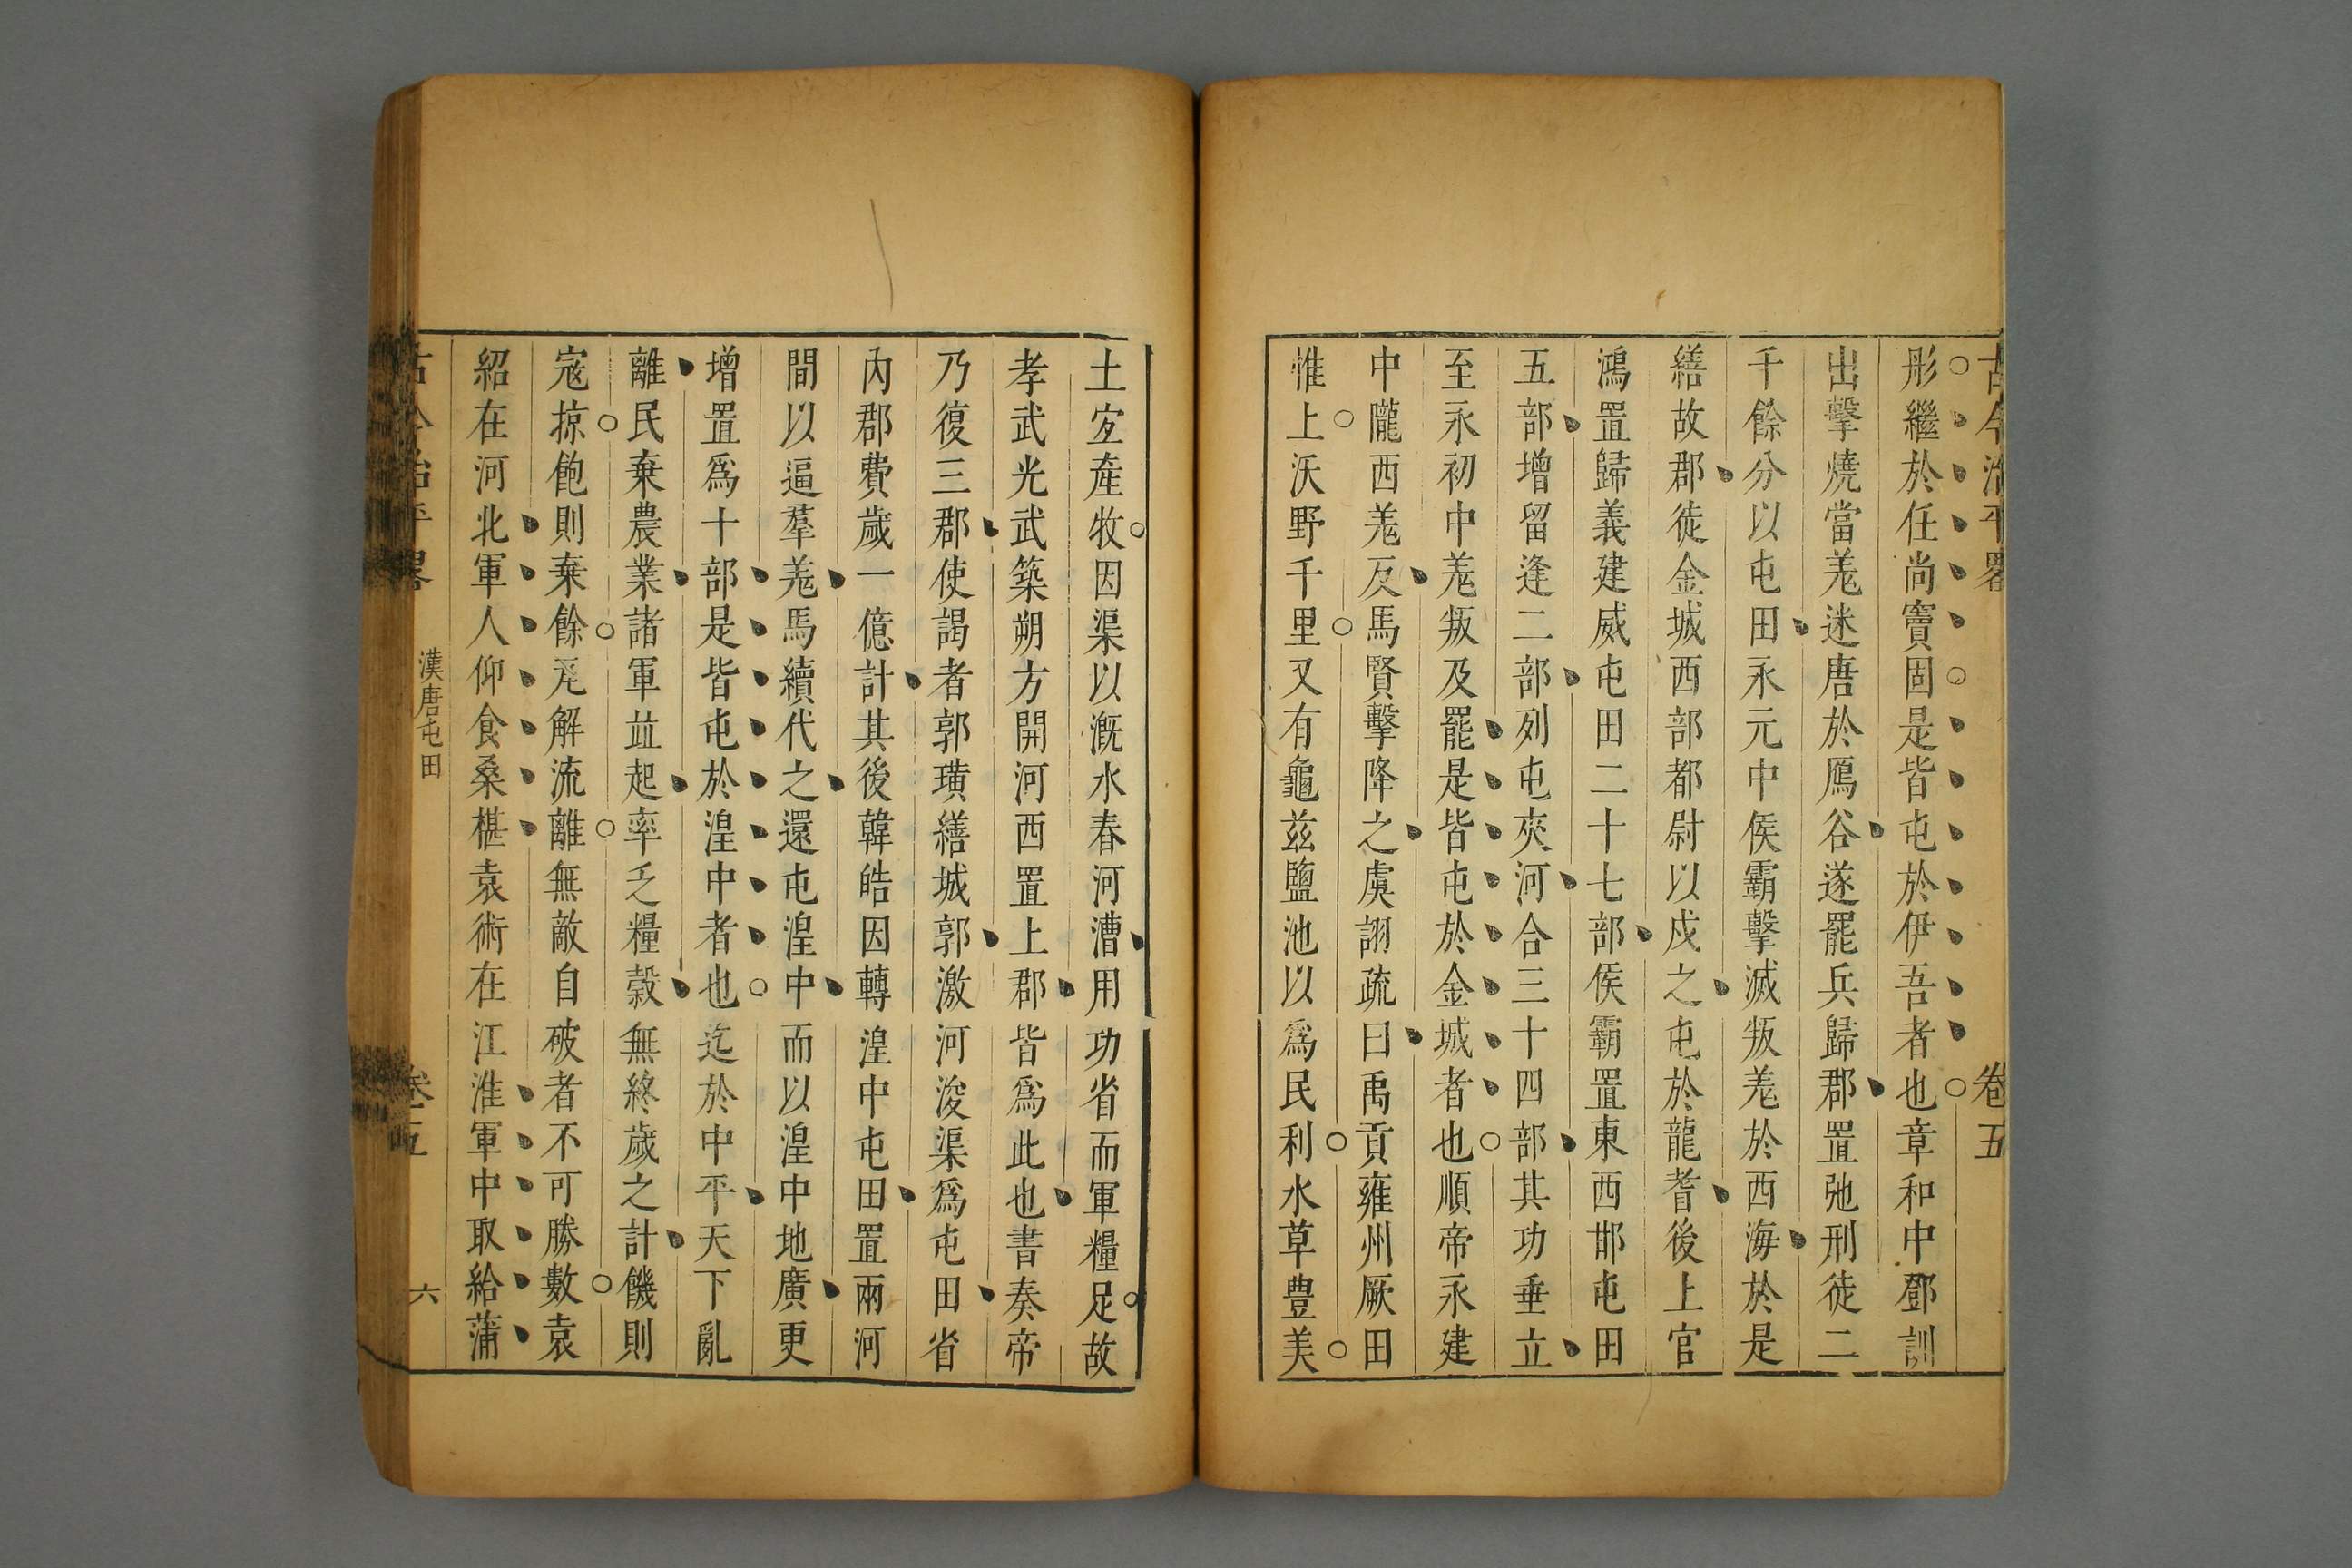 古今治平畧 卷五
彤繼於任尚竇固是皆屯於伊吾者也章和中鄧訓
出擊燒當羌迷唐於鴈谷遂罷兵歸郡置弛刑徒二
千餘分以屯田永元中侯霸擊滅叛羌於西海於是
繕故郡徙金城西部都尉以戍之屯於龍耆後上官
鴻置歸義建威屯田二十七部侯霸置東西邯屯田
五部增留逢二部列屯夾河合三十四部其功垂立
至永初中羌叛及罷是皆屯於金城者也順帝永建
中隴西羌反馬賢擊降之虞詡疏曰禹貢雍州厥田
惟上沃野千里又有龜兹鹽池以爲民利水草豊美
土宜產牧因渠以漑水春河漕用功省而軍糧足故
孝武光武築朔方開河西置上郡皆爲此也書奏帝
乃復三郡使謁者郭璜繕城郭激河浚渠爲屯田省
內郡費歲一億計其後韓皓因轉湟中屯田置兩河
間以逼羣羌馬續代之還屯湟中而以湟中地廣更
增置爲十部是皆屯於湟中者也迄於中平天下亂
離民棄農業諸軍並起率乏糧穀無終歲之計饑則
寇掠飽則棄餘瓦解流離無敵自破者不可勝數袁
紹在河北軍人仰食桑椹袁術在江淮軍中取給蒲
古今治平畧 漢唐屯田 卷五 六